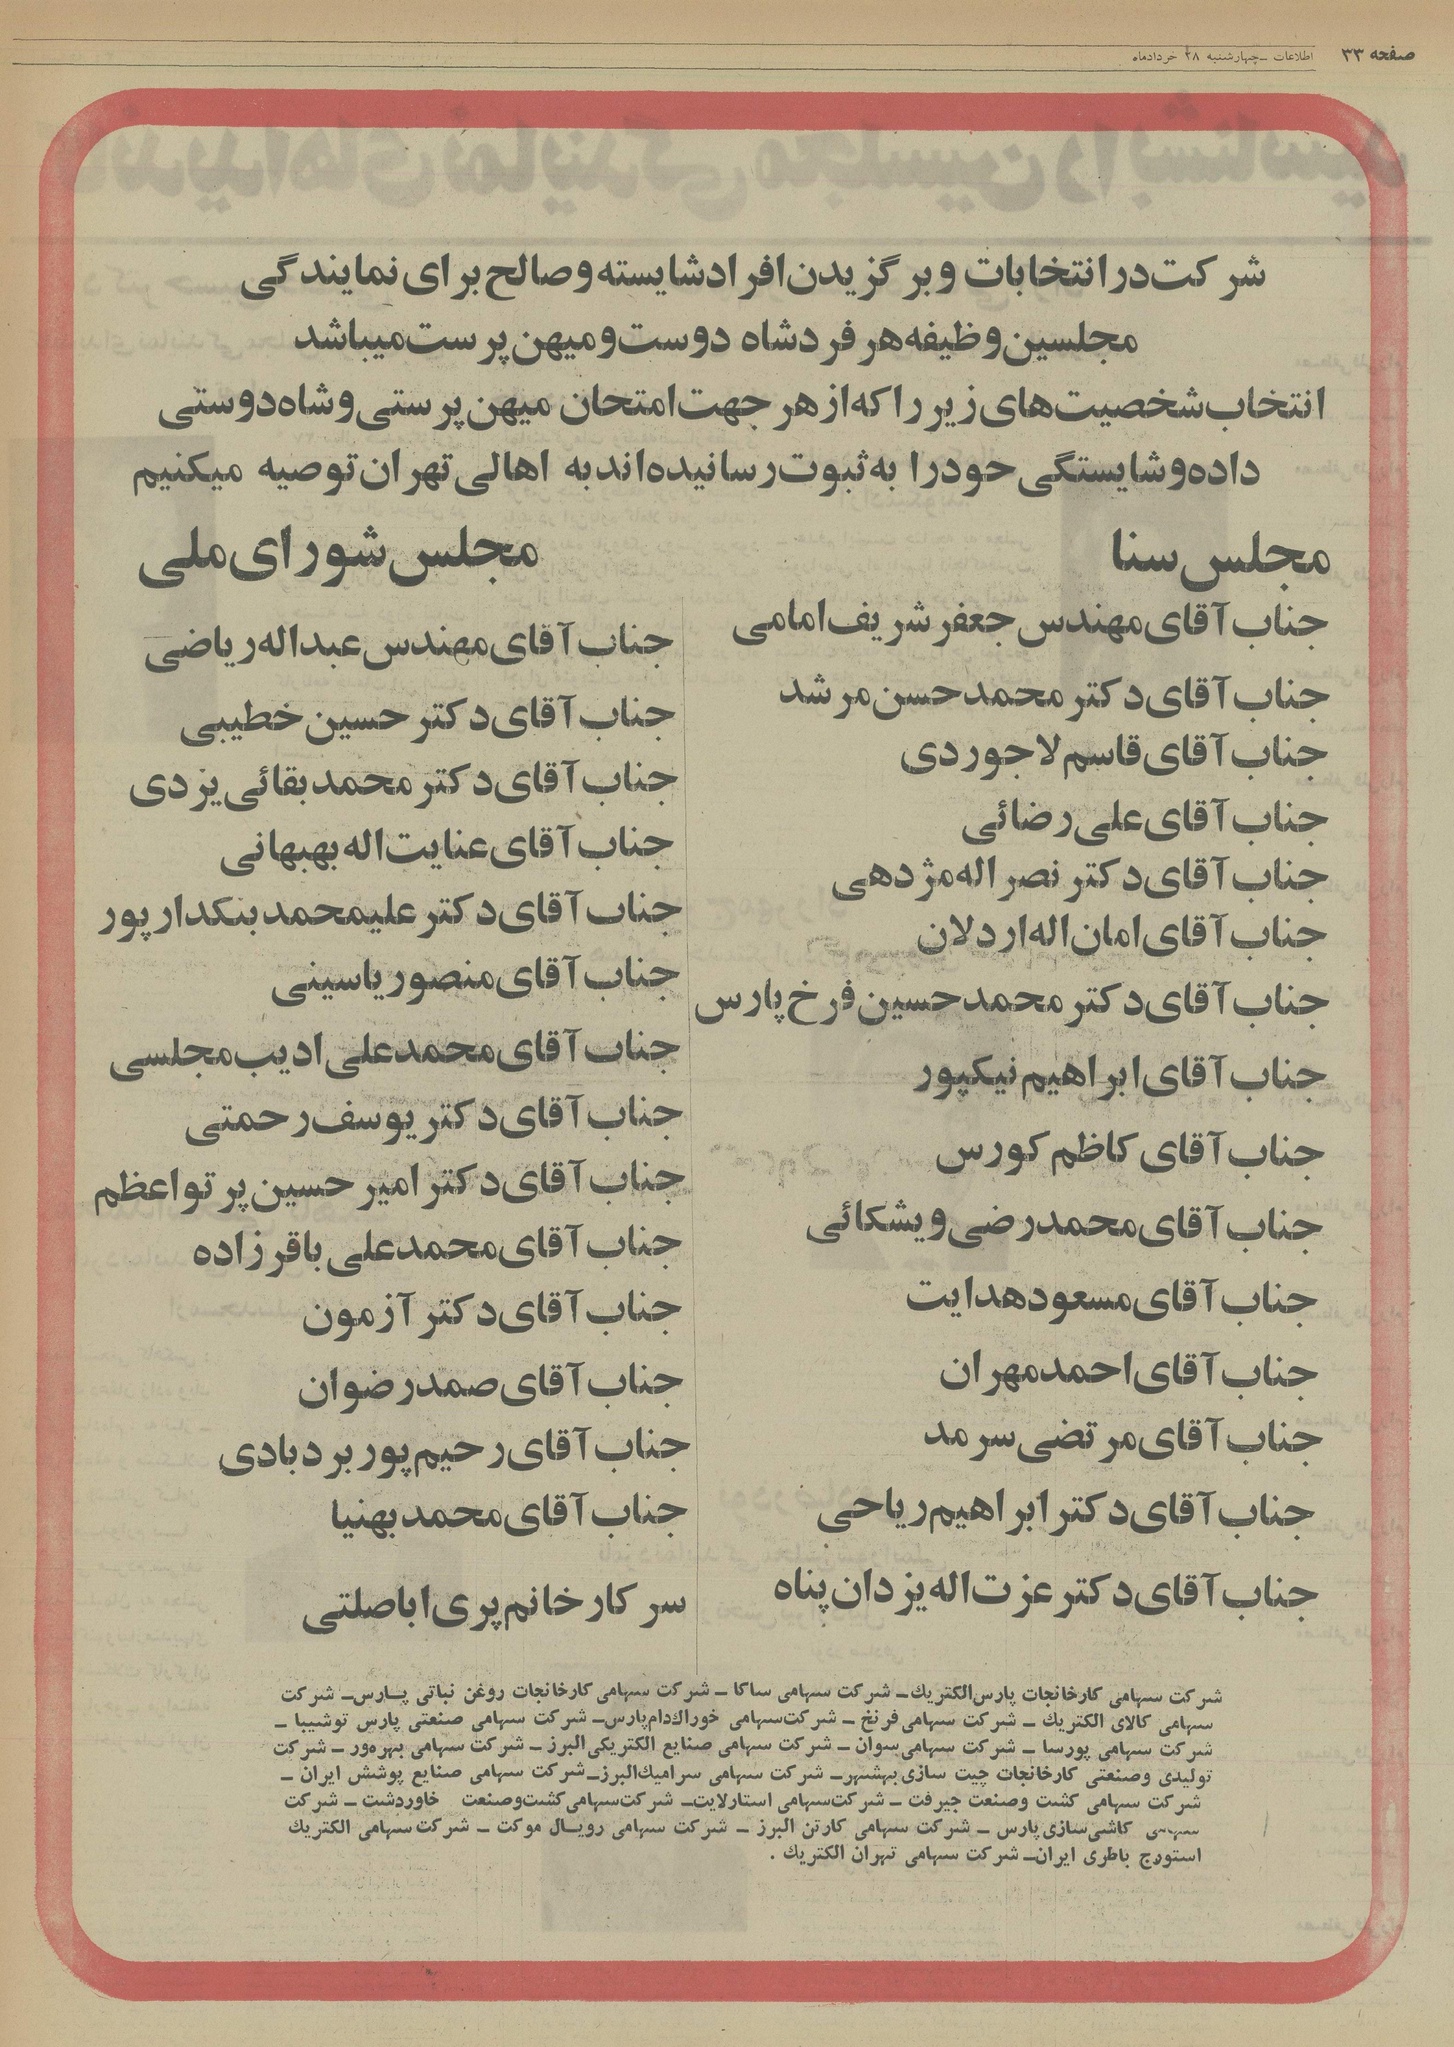 صفحه ۳۳
اطلاعات ــ چهارشنبه ۲۸ خردادماه
شرکت در انتخابات و برگزیدن افراد شایسته و صالح برای نمایندگی
مجلسین وظیفه هر فرد شاه دوست و میهن پرست میباشد
انتخاب شخصیت‌های زیر را که از هر جهت امتحان میهن پرستی و شاه دوستی
داده و شایستگی خود را به ثبوت رسانیده‌اند به اهالی تهران توصیه میکنیم
مجلس سنا
جناب آقای مهندس جعفر شریف امامی
جناب آقای دکتر محمد حسن مرشد
جناب آقای قاسم لاجوردی
جناب آقای علی رضائی
جناب آقای دکتر نصراله مژدهی
جناب آقای امان اله اردلان
جناب آقای دکتر محمد حسین فرخ پارس
جناب آقای ابراهیم نیکپور
جناب آقای کاظم کورس
جناب آقای محمد رضی ویشکائی
جناب آقای مسعود هدایت
جناب آقای احمد مهران
جناب آقای مرتضی سرمد
جناب آقای دکتر ابراهیم ریاحی
جناب آقای دکتر عزت اله یزدان پناه
مجلس شورای ملی
جناب آقای مهندس عبداله ریاضی
جناب آقای دکتر حسین خطیبی
جناب آقای دکتر محمد بقائی یزدی
جناب آقای عنایت اله بهبهانی
جناب آقای دکتر علیمحمد بنکدارپور
جناب آقای منصور یاسینی
جناب آقای محمد علی ادیب مجلسی
جناب آقای دکتر یوسف رحمتی
جناب آقای دکتر امیر حسین پرتو اعظم
جناب آقای محمد علی باقرزاده
جناب آقای دکتر آزمون
جناب آقای صمد رضوان
جناب آقای رحیم پور بردبادی
جناب آقای محمد بهنیا
سرکار خانم پری اباصلتی
شرکت سهامی کارخانجات پارس الکتریك ــ شرکت سهامی ساکا ــ شرکت سهامی کارخانجات روغن نباتی پــارس ــ شرکت
سهامی کالای الکتریك ــ شرکت سهامی فرنخ ــ شرکت سهامی خوراك دام پارس ــ شرکت سهامی صنعتی پارس توشیبا ــ
شرکت سهامی پورسا ــ شرکت سهامی سوان ــ شرکت سهامی صنایع الکتریکی البرز ــ شرکت سهامی بهره‌ور ــ شرکت
تولیدی وصنعتی کارخانجات چیت سازی بهشهر ــ شرکت سهامی سرامیك البرز ــ شرکت سهامی صنایع پوشش ایران ــ
شرکت سهامی کشت وصنعت جیرفت ــ شرکت سهامی استارلایت ــ شرکت سهامی کشت وصنعت خاوردشت ــ شرکت
سهامی کاشی سازی پارس ــ شرکت سهامی کارتن البرز ــ شرکت سهامی رویــال موکت ــ شرکت سهامی الکتریك
استورج باطری ایران ــ شرکت سهامی تهران الکتریك .